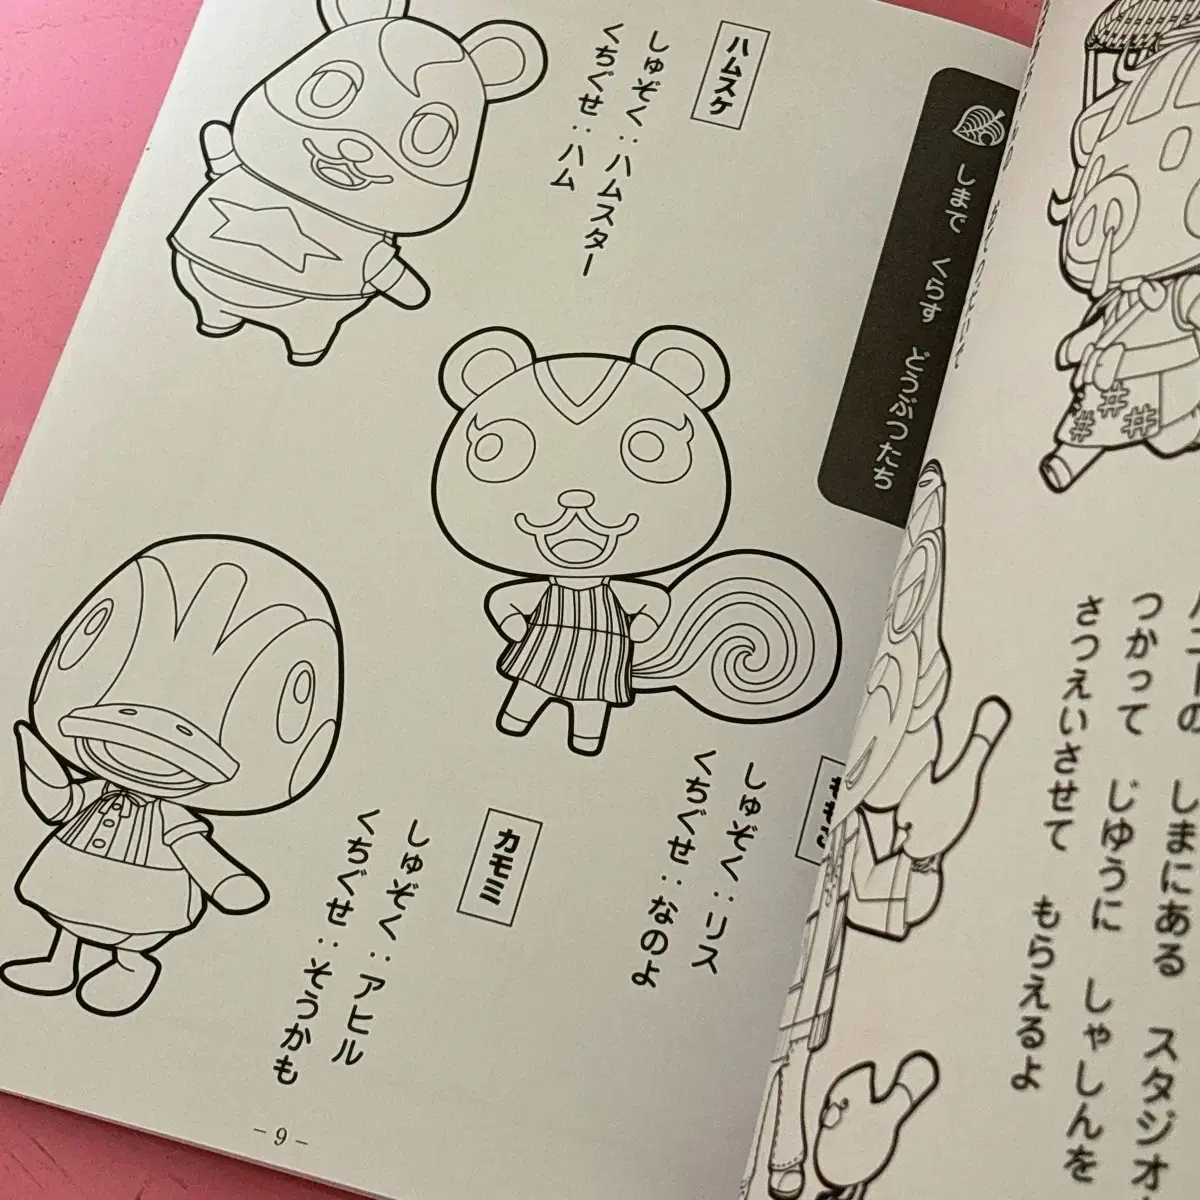 しまで くらす どうぶつたち
ハムスケ
しゅぞく：ハムスター
くちぐせ：ハム
しゅぞく：リス
くちぐせ：なのよ
カモミ
しゅぞく：アヒル
くちぐせ：そうかも
－9－
しまにある スタジオ
つかって じゆうに しゃしんを
さつえいさせて もらえるよ